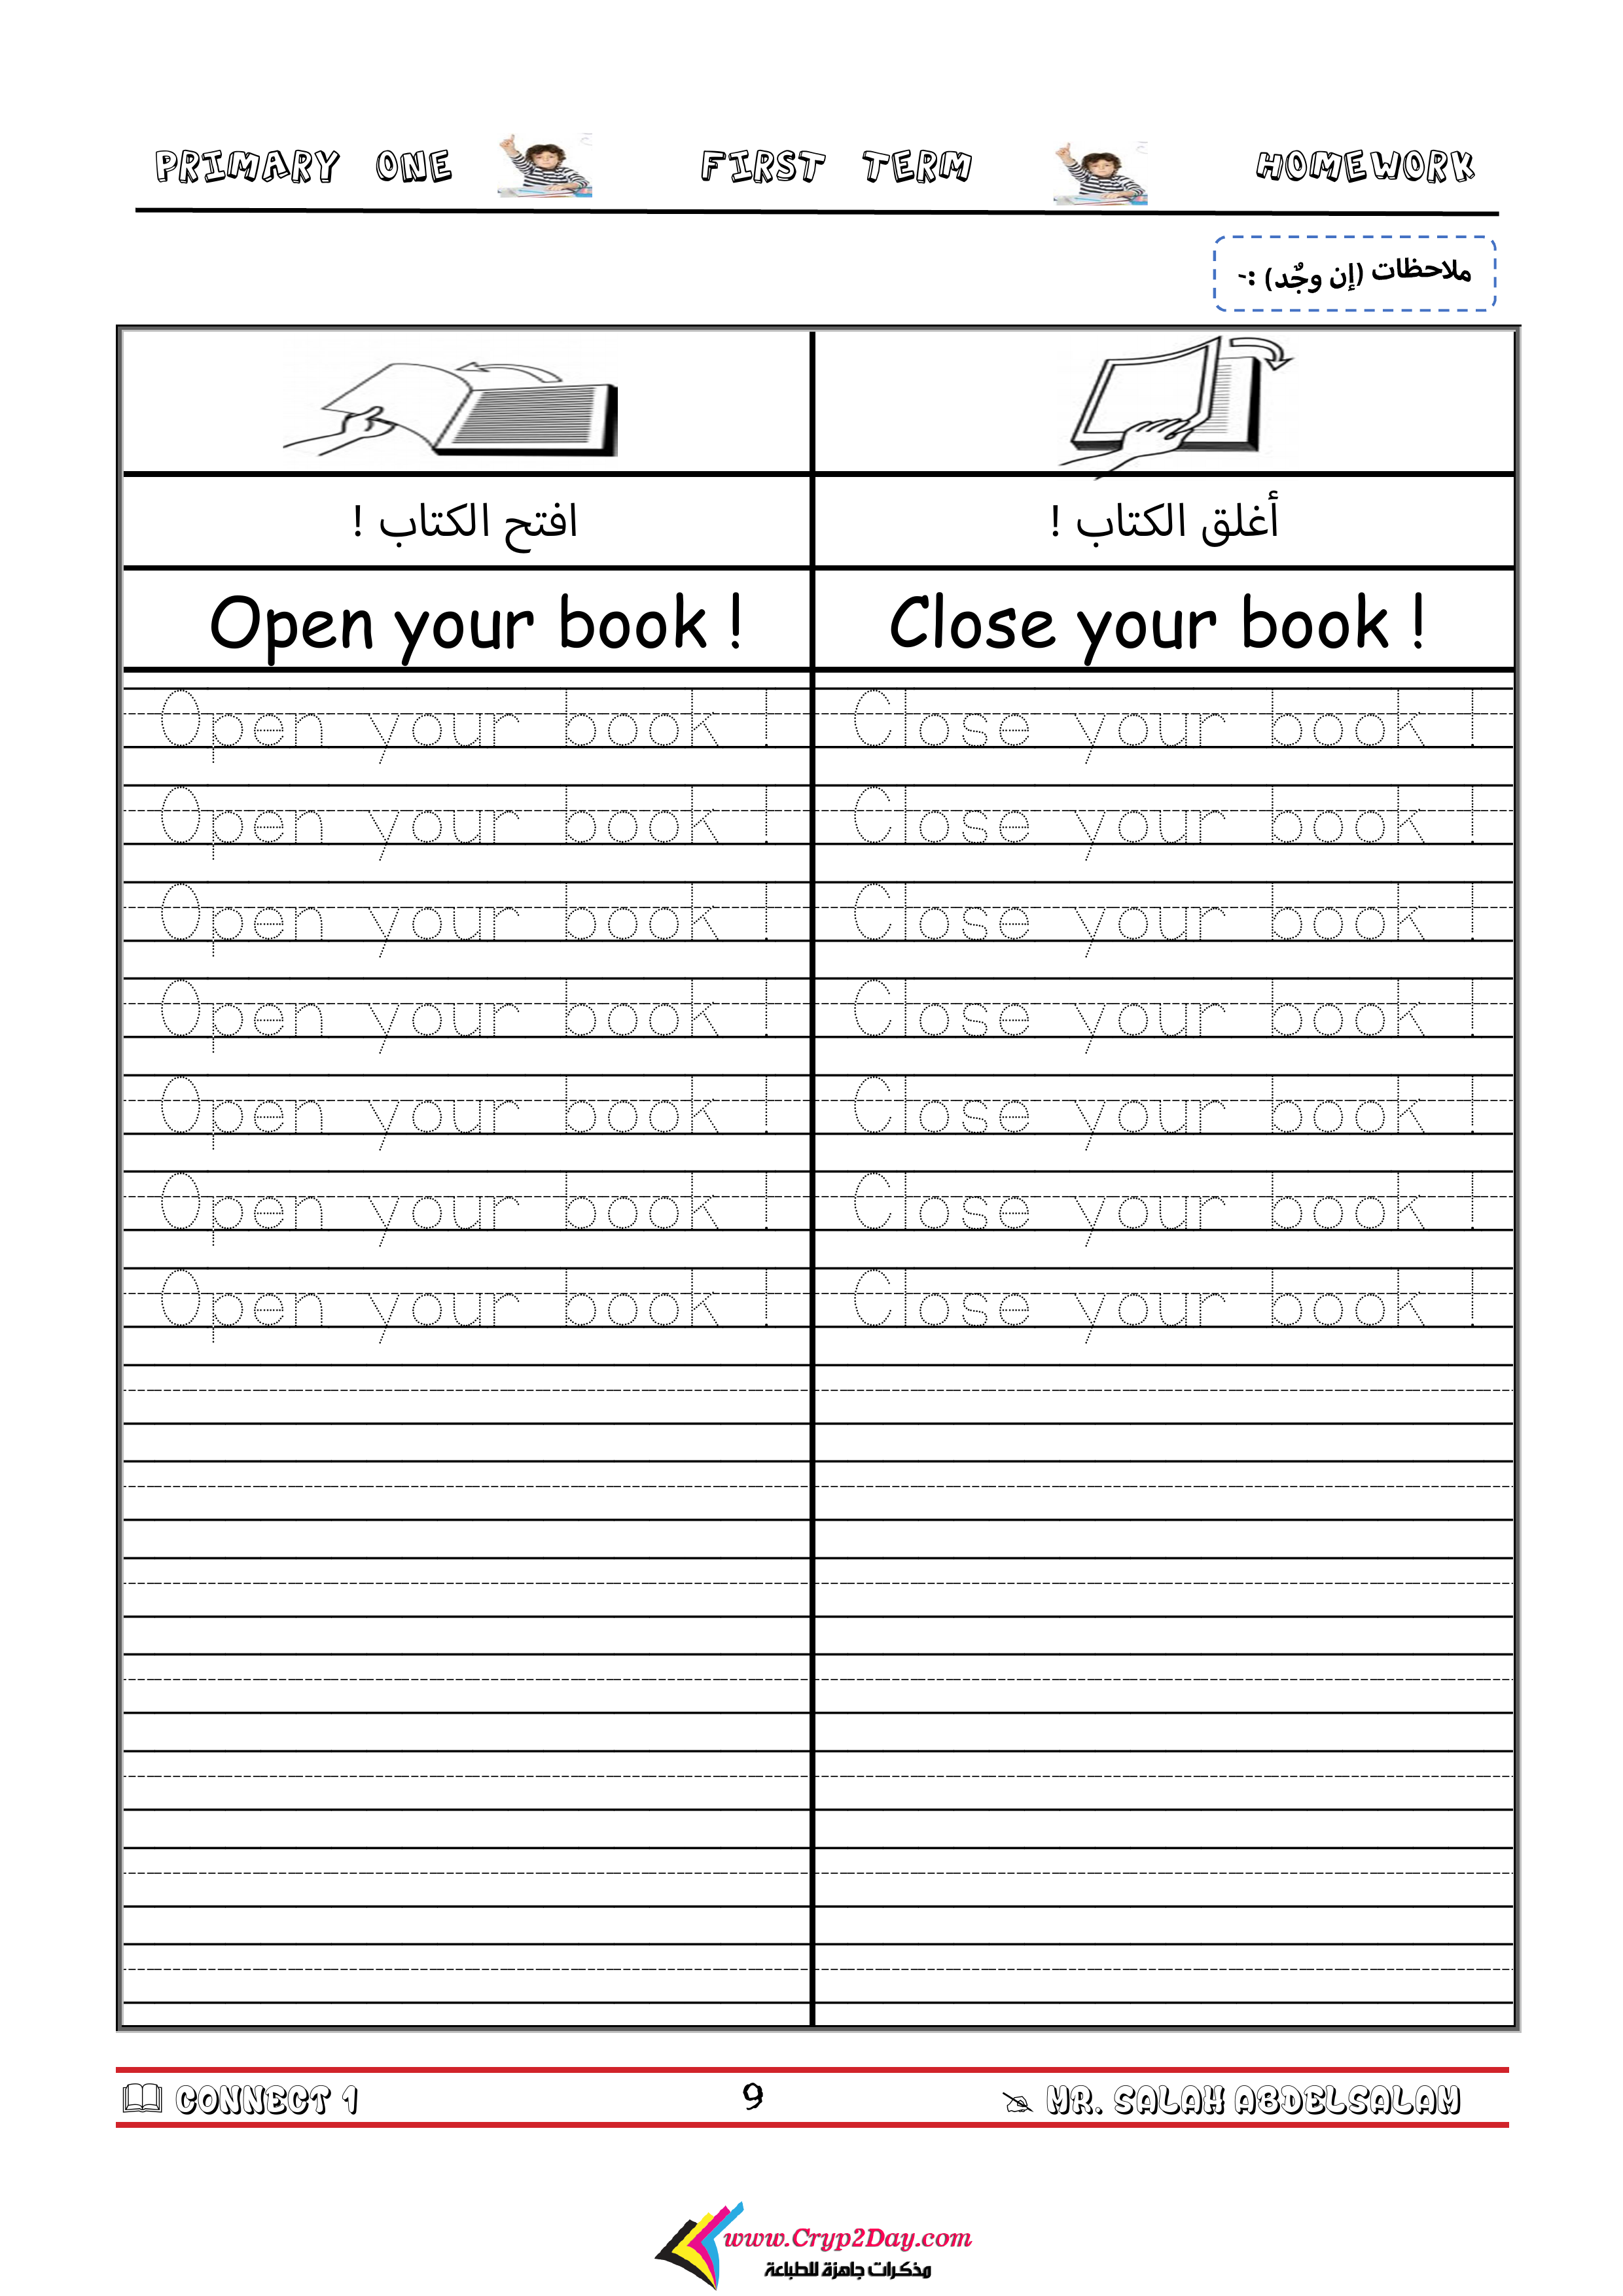 PRIMARY ONE FIRST TERM HOMEWORK
ملاحظات (إن وجُد) :-
افتح الكتاب ! أغلق الكتاب !
Open your book ! Close your book !
Open your book ! Close your book !
Open your book ! Close your book !
Open your book ! Close your book !
Open your book ! Close your book !
Open your book ! Close your book !
Open your book ! Close your book !
Open your book ! Close your book !
CONNECT 1 9 MR. SALAH ABDELSALAM
www.Cryp2Day.com
مذكرات جاهزة للطباعة